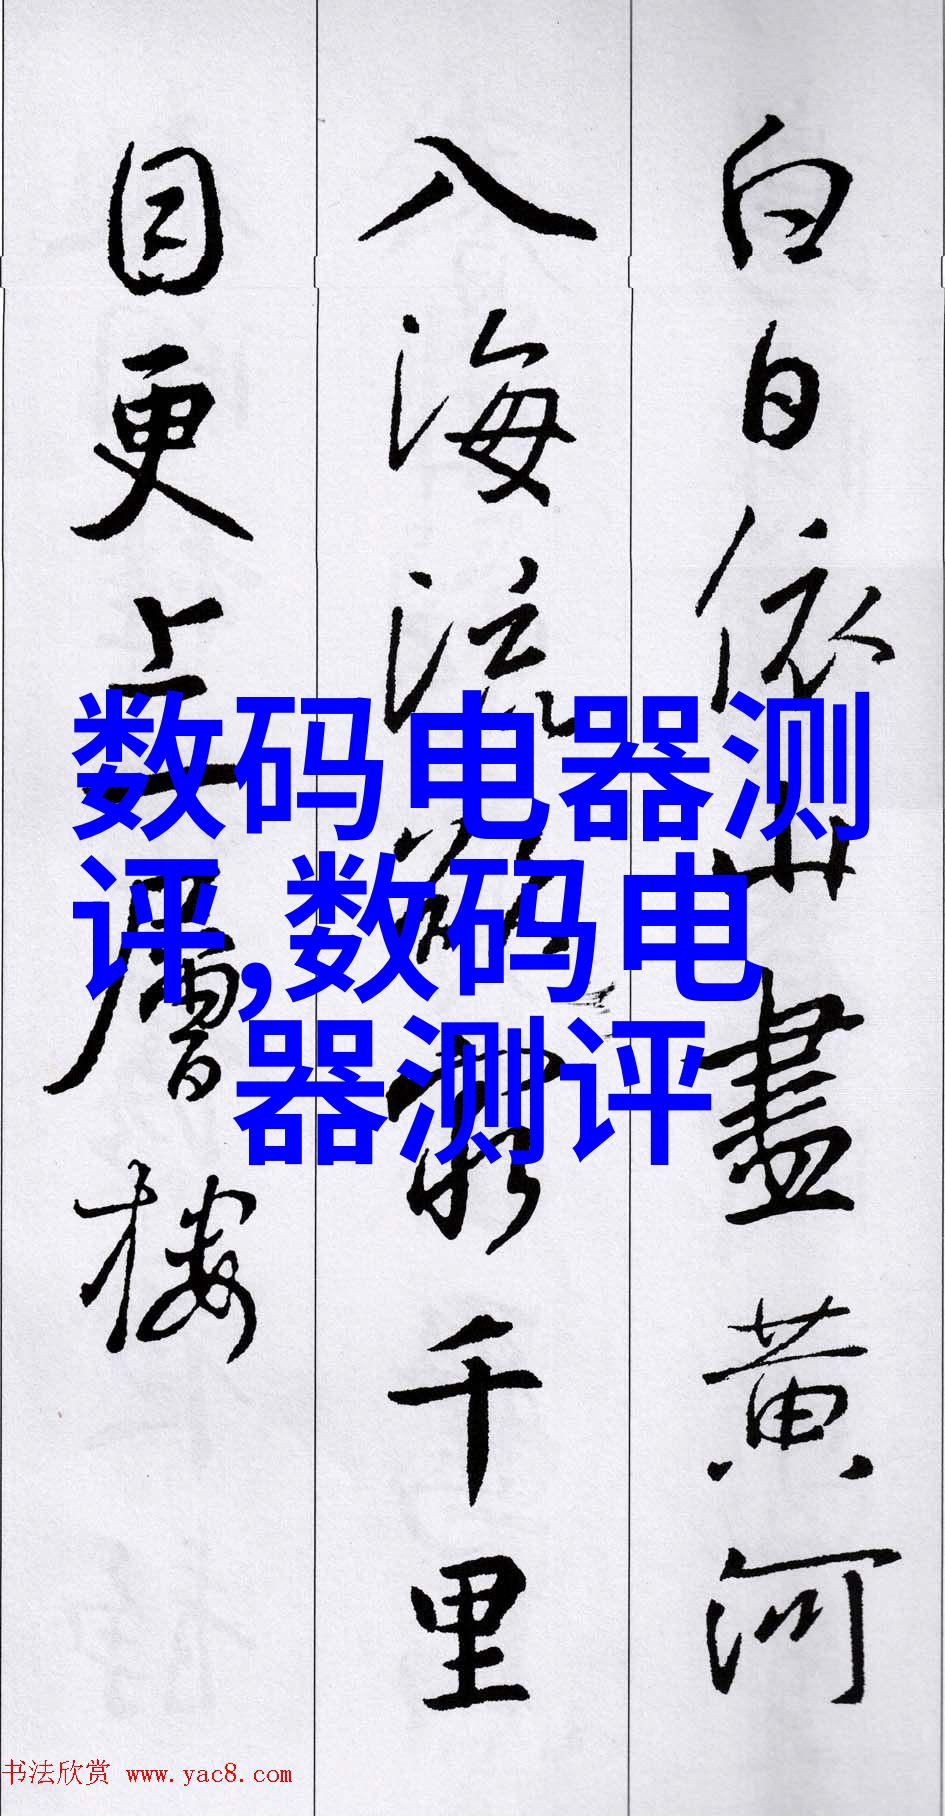 白日依山盡黄河
入海流欲窮千里
目更上一層樓
数码电器测
评,数码电
器测评
书法欣赏 www.yac8.com